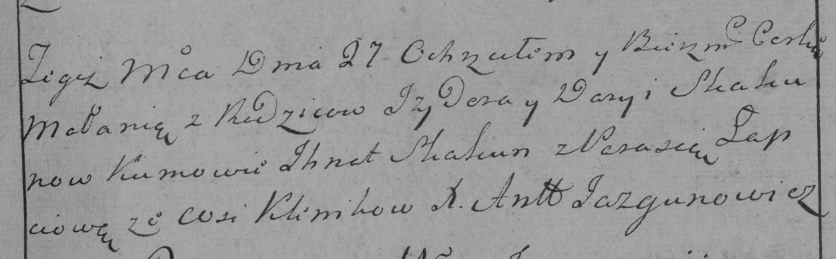 Tegoż Mca Dnia 27 Ochrzciłem y Bierzm Corkę
Małanię z Rodzicow Jzydora y Daryi Skaku
now Kumowie Ihnat Skakun z Parasią Łap
ciową ze wsi Klinikow X. Antt Jazgunowicz